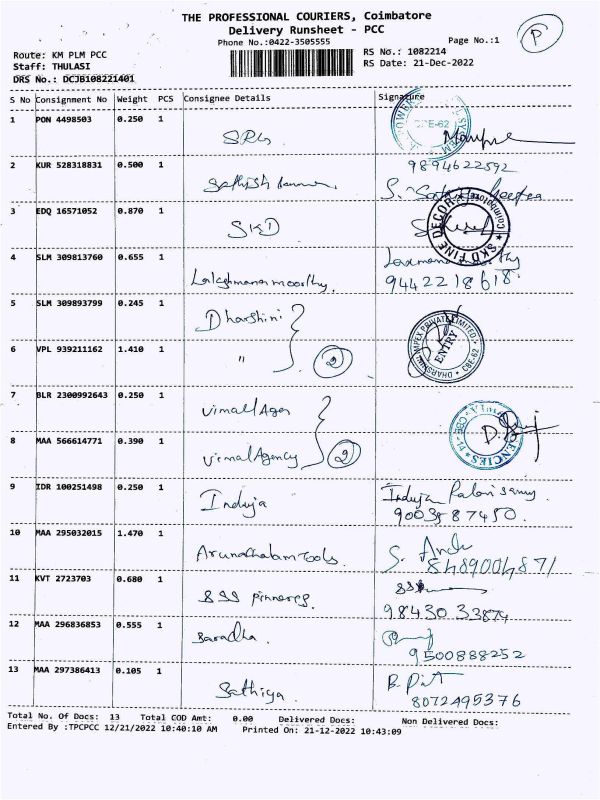 THE PROFESSIONAL COURIERS, Coimbatore
Delivery Runsheet - PCC
Phone No.:0422-3505555 Page No.:1 P
Route: KM PLM PCC RS No.: 1082214
Staff: THULASI RS Date: 21-Dec-2022
DRS No.: DCJB108221401
S No Consignment No Weight PCS Consignee Details Signature
1 PON 4498503 0.250 1 SRG CBE-62
2 KUR 528318831 0.500 1 9894622592
3 EDQ 16571052 0.870 1 SKD SKD FINE DECOR Coimbatore
4 SLM 309813760 0.655 1 Lakshmanamoorthy. 9442218618
5 SLM 309893799 0.245 1 Dharshini DHARSHINI IMPEX PRIVATE LIMITED CBE-62 ENTRY
6 VPL 939211162 1.410 1 " 2
7 BLR 2300992643 0.250 1 Vimal Agen
8 MAA 566614771 0.390 1 Vimal Agency 2
9 IDR 100251498 0.250 1 Induja Induja Palanisamy
9003587450.
10 MAA 295032015 1.470 1 Arunachalam Tools.
11 KVT 2723703 0.680 1
12 MAA 296836853 0.555 1 Baradha. 9500888252
13 MAA 297386413 0.105 1 Sathiya. 8072495376
Total No. Of Docs: 13 Total COD Amt: 0.00 Delivered Docs: Non Delivered Docs:
Entered By :TPCPCC 12/21/2022 10:40:10 AM Printed On: 21-12-2022 10:43:09